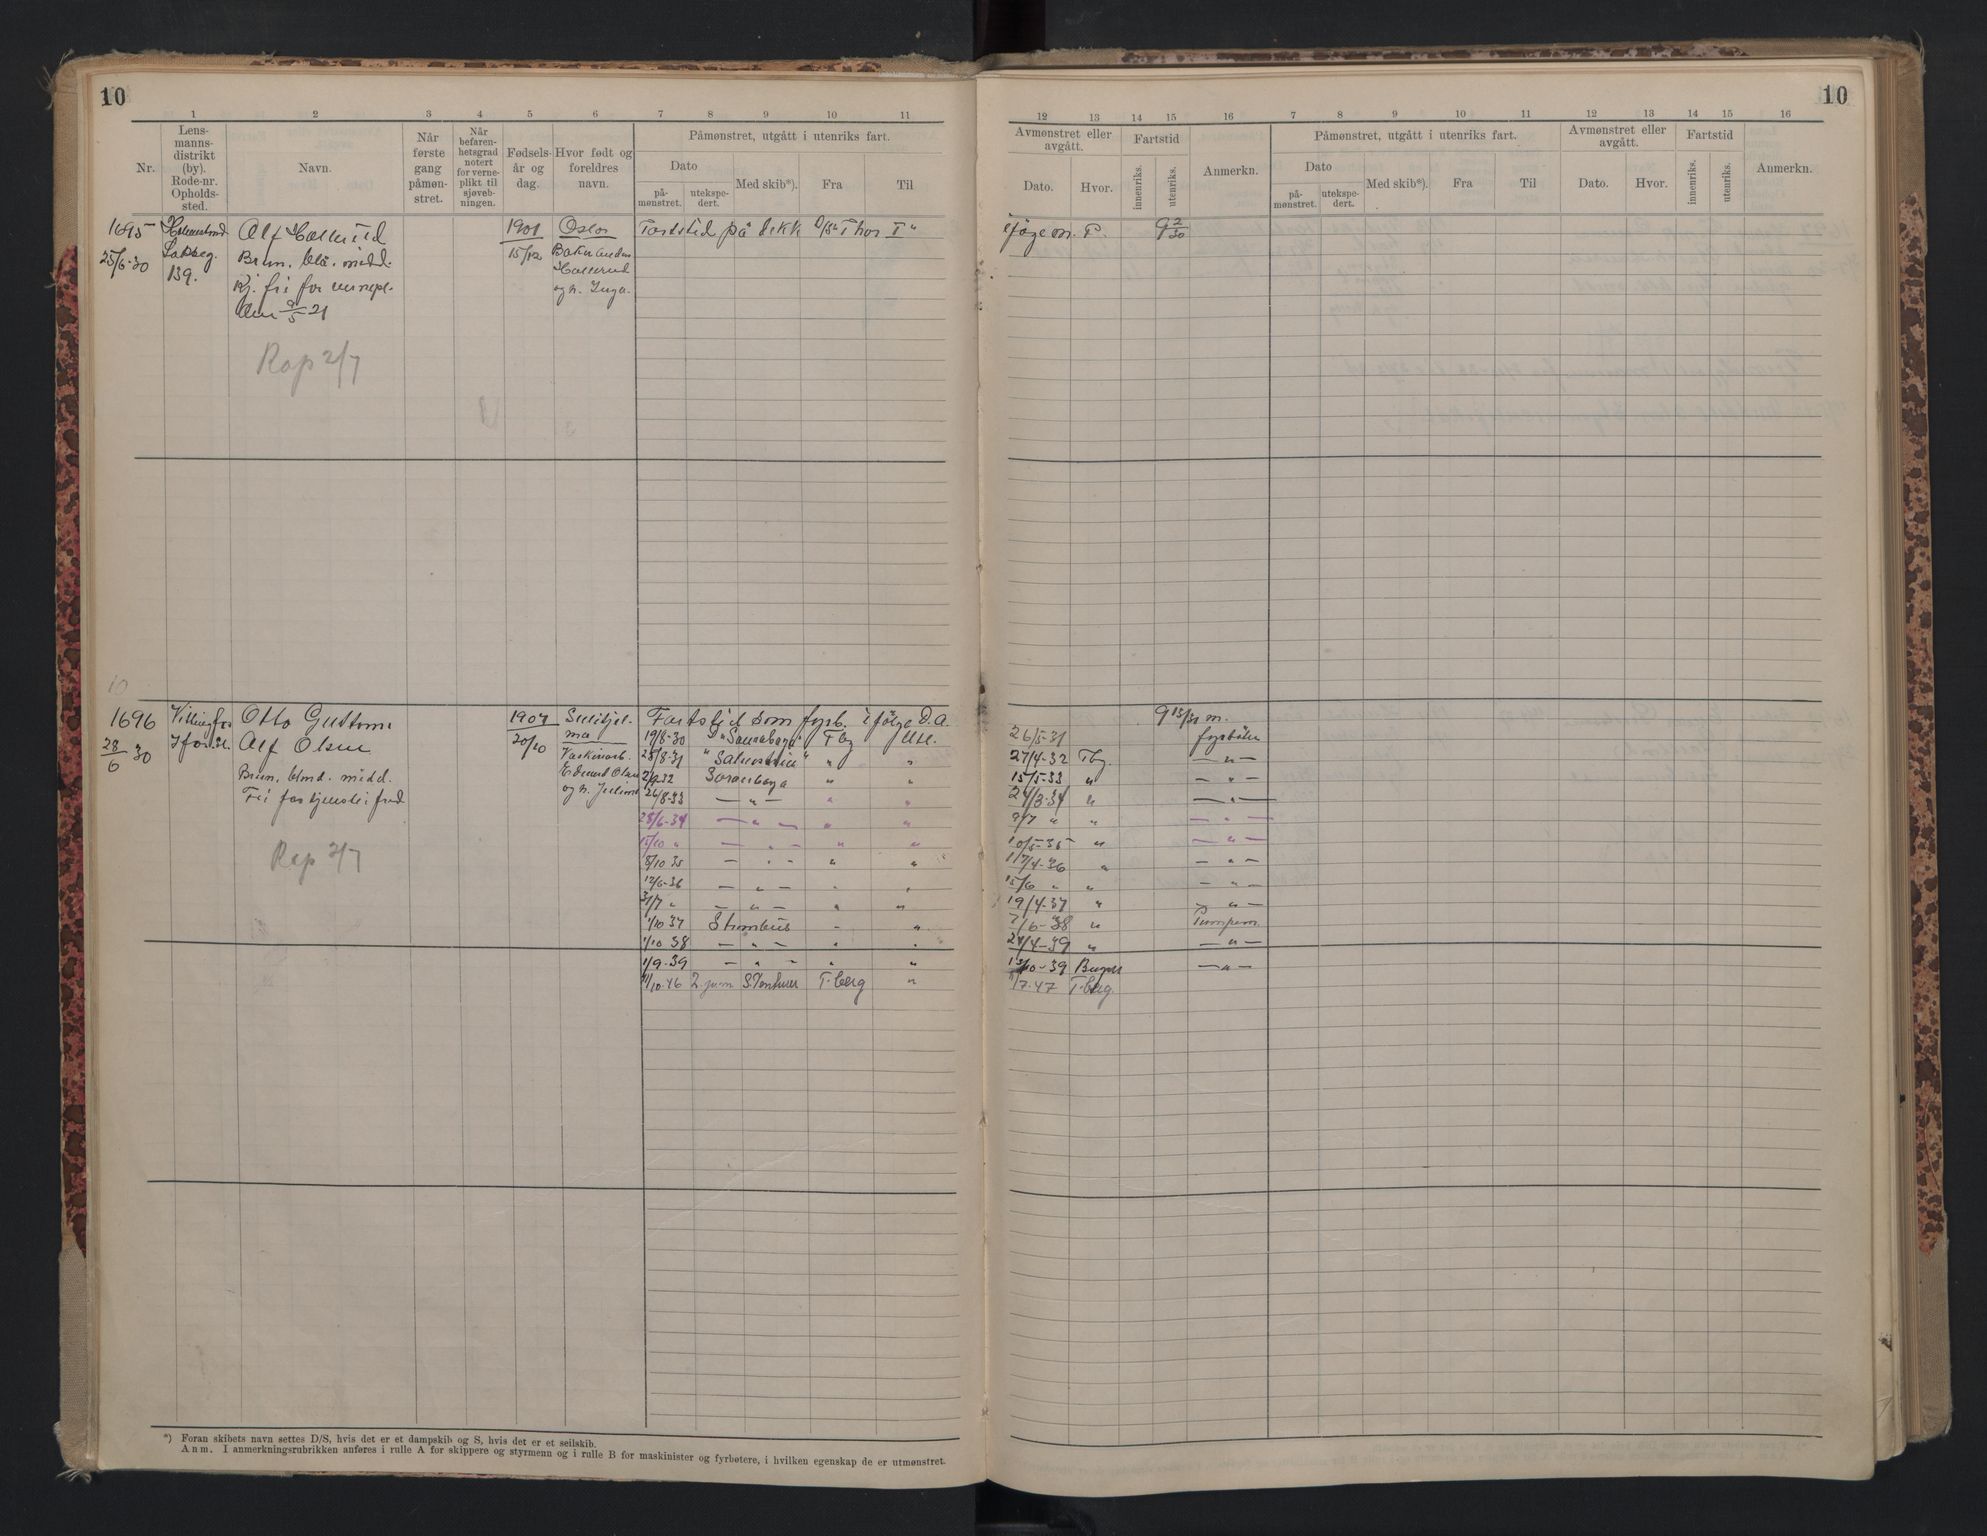 10
10
1 2 3 4 5 6 7 8 9 10 11
12 13 14 15 16 7 8 9 10 11 12 13 14 15 16
Nr.
Lens-
manns-
distrikt
(by).
Rode-nr.
Opholds-
sted.
Navn.
Når
første
gang
påmøn-
stret.
Når
befaren-
hetsgrad
notert
for verne-
plikt til
sjøveb-
ningen.
Fødsels-
år og
dag.
Hvor født og
foreldres
navn.
Påmønstret, utgått i utenriks fart.
Dato
på-
mønstret.
utekspe-
dert.
Med skib*).
Fra
Til
Avmønstret eller
avgått.
Dato.
Hvor.
Fartstid
innenriks.
utenriks.
Anmerkn.
Påmønstret, utgått i utenriks fart.
Dato
på-
mønstret.
utekspe-
dert.
Med skib*).
Fra
Til
Avmønstret eller
avgått.
Dato.
Hvor.
Fartstid
innenriks.
utenriks.
Anmerkn.
1695
25/6-30
Holmestrand
139.
Alf Hallerud
Brun. blå. midd.
Kj. fri for vernepl.
den 9/5 21
Rap 2/7
1901
15/12
Oslo
Baker Anders
Hallerud
og h. Inga.
Fartstid på dekk D/S "Thor I"
ifølge m. P.
9 2/30
10
1696
28/6 30
Otto Gustav
Alf Olsen
Brun. blond. midd.
Rap 2/7
1907
20/10
Sulitjel-
ma
Edvard Olsen
Fartstid som fyrb. ifølge D.A.
9 15/31 m.
19/8-30 Tbg Utl. 26/5-31 fyrbøter
28/8-31 " " 27/4-32 Tbg. — " —
2/9 32 " " 15/5-33 " — " —
26/8-33 — " — " " 24/3-34 " — " —
28/6-34 — " — " " 9/7 " " — " —
15/10 " — " — " " 10/5-35 " — " —
8/10 35 — " — " " 17/4-36 " — " —
12/6-36 — " — " " 15/6 " " — " —
31/7 " — " — " " 19/4-37 " — " —
1/10 37 Strombus " " 7/6-38 " Pumpem.
1/10 38 — " — " " 24/4-39 " — " —
1/9-39 — " — " " — " —
11/10-46 T.berg " 11/7-47 T.berg.
*) Foran skibets navn settes D/S, hvis det er et dampskib og S, hvis det er et seilskib.
Anm. I anmerkningsrubrikken anføres i rulle A for skippere og styrmenn og i rulle B for maskinister og fyrbøtere, i hvilken egenskap de er utmønstret.